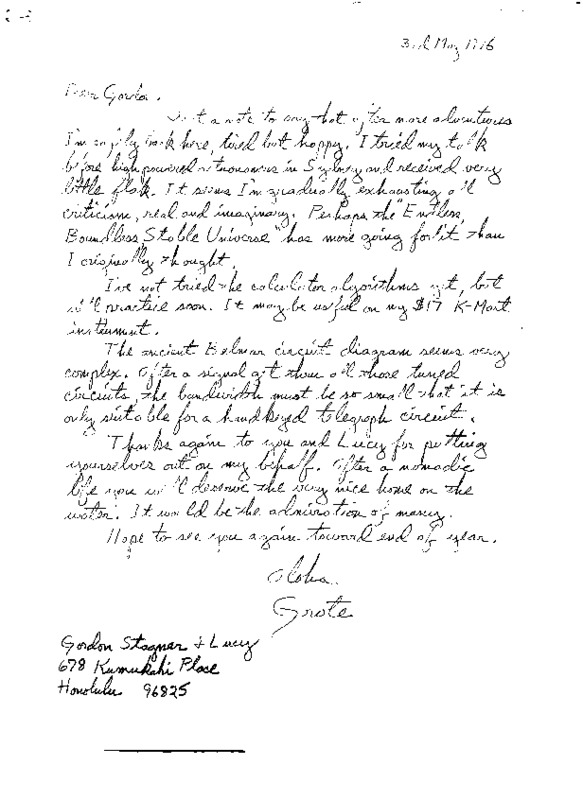 3rd May 1976
Dear Gordon.
Just a note to say that after more adventures
I'm safely back here, tired but happy. I tried my talk
before high powered astronomers in Sydney and received very
little flak. It seems I'm gradually exhausting all
criticism, real and imaginary. Perhaps the "Endless,
Boundless, Stable Universe" has more going for it than
I originally thought.
I've not tried the calculator algorithms yet, but
will practice soon. It may be useful on my $17 K-Mart
instrument.
The ancient Belmar circuit diagram seems very
complex. After a signal got thru all those tuned
circuits, the bandwidth must be so small that it is
only suitable for a hand keyed telegraph circuit.
Thanks again to you and Lucy for putting
yourselves out on my behalf. After a nomadic
life you will deserve the very nice home on the
water. It would be the admiration of many.
Hope to see you again toward end of year.
Aloha.
Grote
Gordon Stagner & Lucy
678 Kumukahi Place
Honolulu 96825